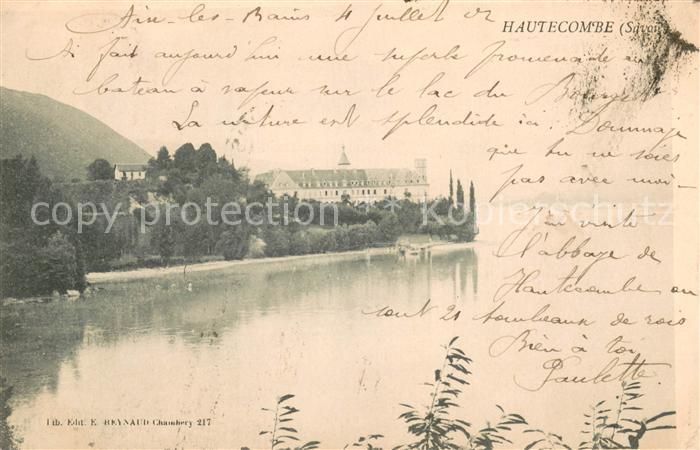 Aix-les-Bains 4 Juillet 02
HAUTECOMBE (Savoie)
Ai fait aujourd'hui une superbe promenade en
bateau à vapeur sur le lac du Bourget
La nature est splendide ici. Dommage
que tu ne sois
pas avec moi-
J'ai visité
l'abbaye de
Hautecombe où
sont 21 tombeaux de rois
Bien à toi
Paulette.
copy protection
Kopierschutz
Lib. Edit. E. REYNAUD Chambery 217